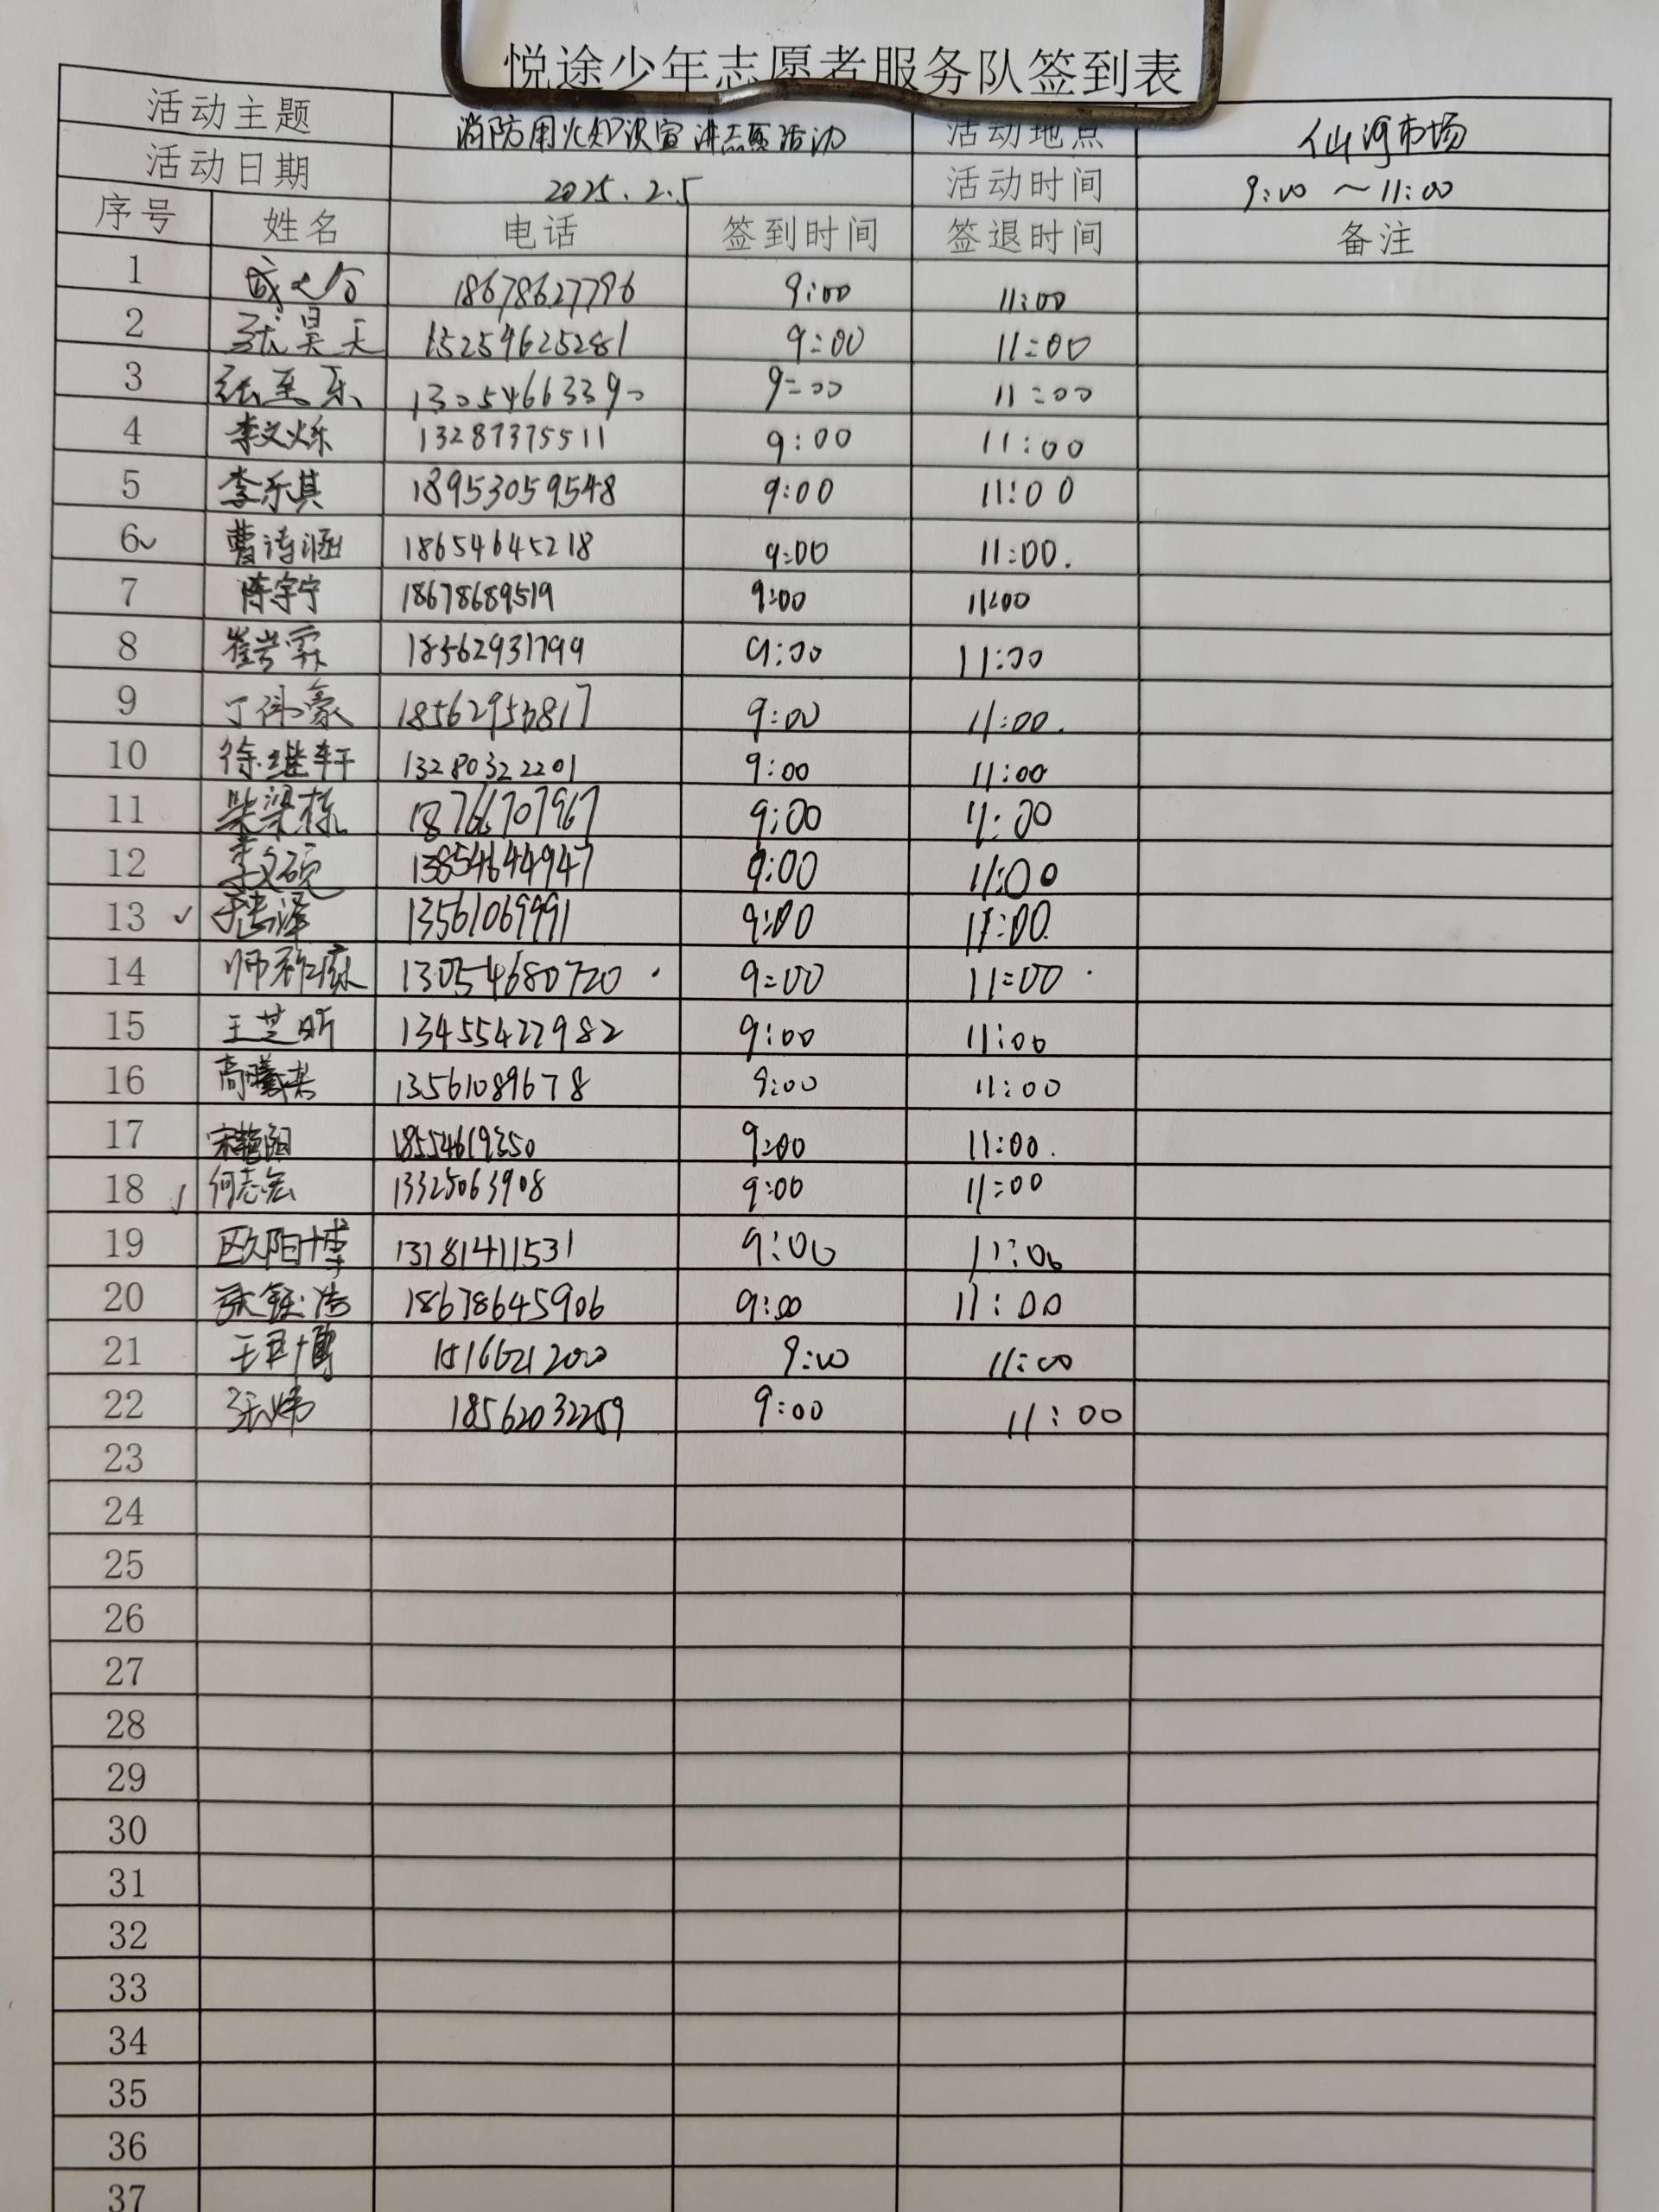 悦途少年志愿者服务队签到表
活动主题 消防用火知识宣讲志愿活动 活动地点 仙河市场
活动日期 2025.2.5 活动时间 9:00～11:00
序号 姓名 电话 签到时间 签退时间 备注
1 18678627796 9:00 11:00
2 张昊天 15254625281 9:00 11:00
3 张至乐 13054663390 9:00 11:00
4 李文烁 13287375511 9:00 11:00
5 李乐其 18953059548 9:00 11:00
6 曹诗涵 18654645218 9:00 11:00.
7 陈宇宁 18678689519 9:00 11:00
8 崔岩霖 18562931799 9:00 11:00
9 丁伟豪 18562953817 9:00 11:00.
10 徐继轩 13280322201 9:00 11:00
11 柴梁栋 18766707967 9:00 11:00
12 李文硕 13854644947 9:00 11:00
13 ✓ 13561069991 9:00 11:00.
14 13054680720 9:00 11:00
15 王芝昕 13455422982 9:00 11:00
16 13561089678 9:00 11:00
17 宋艳阳 18554619350 9:00 11:00.
18 何志宏 13325063908 9:00 11:00
19 欧阳博 13181411531 9:00 11:00
20 张钰浩 18678645906 9:00 11:00
21 王君博 15166212000 9:00 11:00
22 张炜 18562032259 9:00 11:00
23
24
25
26
27
28
29
30
31
32
33
34
35
36
37